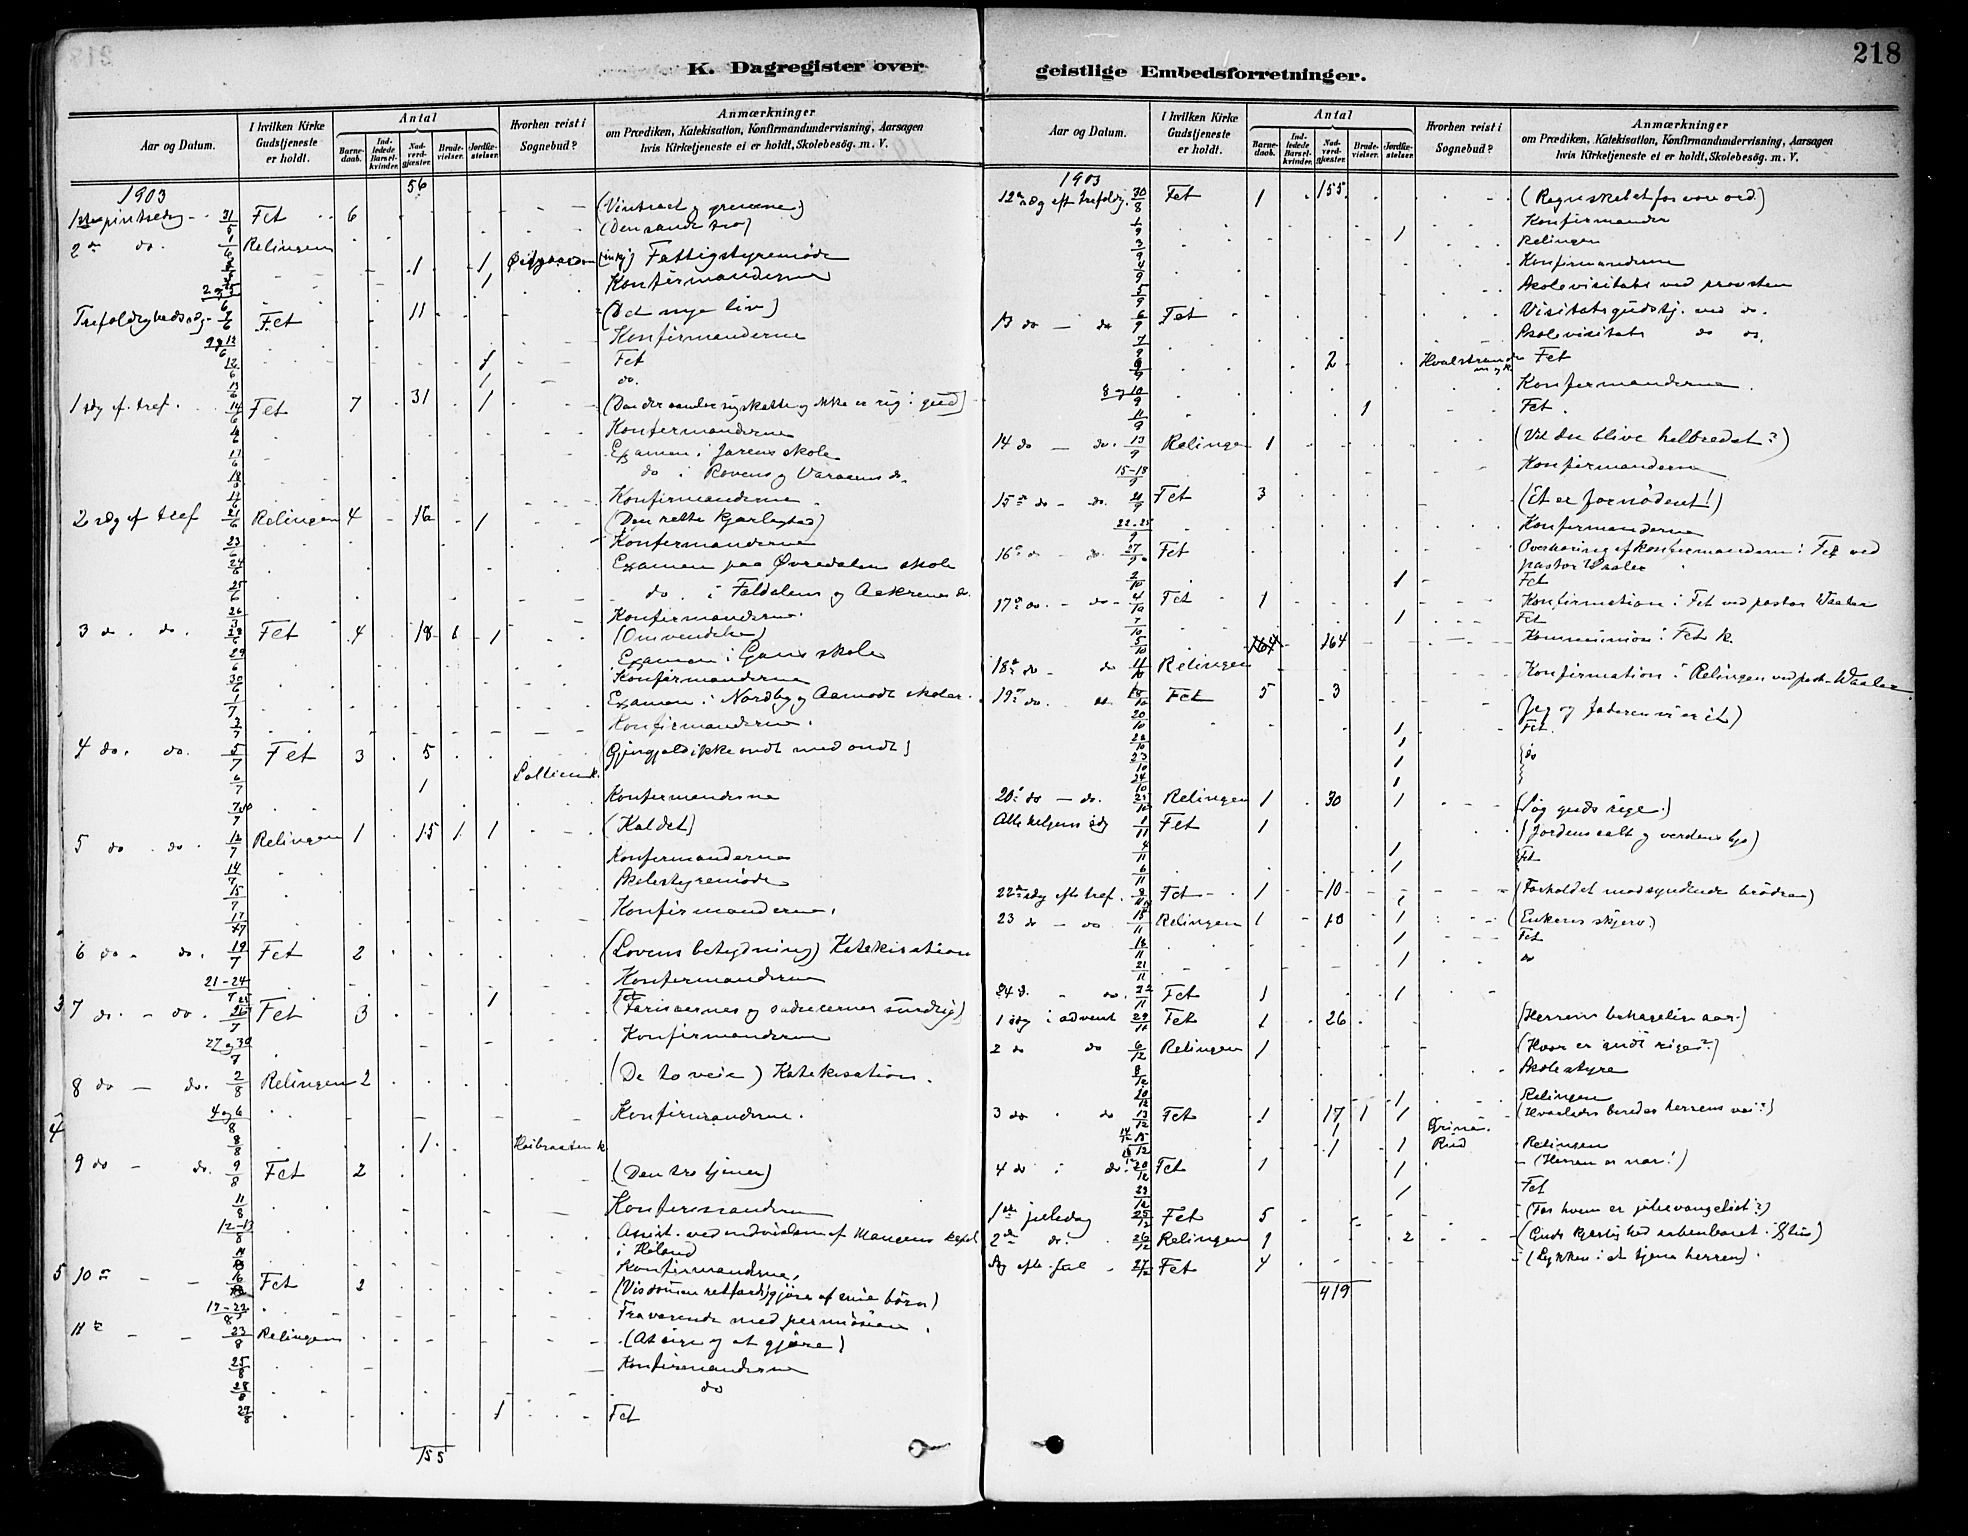 218
K. Dagregister over
geistlige Embedsforretninger.
Aar og Datum.
I hvilken Kirke Gudstjeneste er holdt.
Antal
Barnedaab.
Indledede Barselkvinder.
Nadverdgjester.
Brudevielser.
Jordfæstelser.
Hvorhen reist i Sognebud?
Anmærkninger
om Prædiken, Katekisation, Konfirmandundervisning, Aarsagen
hvis Kirketjeneste ei er holdt, Skolebesøg. m. V.
1903 56
1ste pintsedag 31/5 Fet 6 (Vintræet og grenene)
2den do. 1/6 Relingen (Den sande tro)
1 1 Fattigstyremøde
1 Konfirmanderne
Trefoldighedssdg. 7/6 Fet 11 (Det nye liv)
9 og 12/6 Konfirmanderne
12/6 1 Fet
13/6 1 do.
1 sdg ef. tref. 14/6 Fet 7 31 1
Konfirmanderne
17/6 Examen i Jarens skole
18/6 do i Rovens og Varaaens do.
Konfirmanderne
2 sdg ef tref 21/6 Relingen 4 16 1 (Den rette kjærlighed)
23/6 Konfirmanderne
24/6 Examen paa Øvredalen skole
25/6 do. i Faldalens og Aakrenes do.
26 Konfirmanderne
3 do. do. 28/6 Fet 4 18 1 1 (Omvendelse)
29/6 Examen i Gans skole
30/6 Konfirmanderne
1/7 Examen i Nordby og Aamodt skoler.
2/7 Konfirmanderne.
4 do. do. 5/7 Fet 3 5 (Gjengjæld ikke ondt med ondt)
6/7 1
Konfirmanderne
5 do do. 12/7 Relingen 1 15 1 1 (Kaldet)
14/7 Konfirmanderne
15/7 Skolestyremøde
17/7 Konfirmanderne.
6 do. do. 19/7 Fet 2 (Lovens betydning) Katekisation
21-24/7 Konfirmanderne
25 1 Fet
7 do. - do. 26/7 Fet 3 (Farisæernes og saducæernes surdeig)
27 og 30/7 Konfirmanderne
8 do - do. 2/8 Relingen 2 (De to veie) Katekisation.
4 og 6/8 Konfirmanderne.
8/8 1
9 do - do. 9/8 Fet 2 (Den tro tjener)
11/8 Konfirmanderne
12-13/8 Assist. ved indvielsen af Mangens kapel
i Høland
Konfirmanderne,
5 10de - - 16 Fet 2 (Visdommen retfærdiggjøres af sine børn)
17-22/8 Fraværende med permission.
11te - - 23/8 Relingen (At sige og at gjøre)
25/8 Konfirmanderne
28/8 do
29/8 1 Fet
155
Aar og Datum.
I hvilken Kirke Gudstjeneste er holdt.
Antal
Barnedaab.
Indledede Barselkvinder.
Nadverdgjester.
Brudevielser.
Jordfæstelser.
Hvorhen reist i Sognebud?
Anmærkninger
om Prædiken, Katekisation, Konfirmandundervisning, Aarsagen
hvis Kirketjeneste ei er holdt, Skolebesøg. m. V.
1903
12te sdg eft trefoldg. 30/8 Fet 1 155 (Regnskabet for vore ord)
1/9 Konfirmander
3/9 1 Relingen
4/9 Konfirmanderne
5/9 Skolevisitats ved provsten
13 do - do 6/9 Fet Visitatsgudstj. ved do.
7/9 Skolevisitats do do.
2 Fet
8 og 10/9 Konfirmanderne.
11/9 1 Fet.
14 do - do. 13/9 Relingen 1 (Vil du blive helbredet?)
15-18/9 Konfirmanderne
15de do - do. Fet 3 (Et er fornødent!)
22-25/9 Konfirmanderne
16de do - do. 27/9 Fet Overhøring af konfirmanderne i Fet ved
pastor Waaler
2/10 1 Fet
17de do. - do - 4/10 Fet 1 Konfirmation i Fet ved pastor Waaler
7/10 1 Fet
5/10 164 164 Kommunion i Fet k.
18de do do 11/10 Relingen Konfirmation i Relingen ved past. Waaler
19de do. do Fet 5 3 Jeg og faderen vi er et)
20/10 1 Fet.
22/10 1
23/10 1 do
24/10 1
20de do - do. 25/10 Relingen 1 30 1 (Søg guds rige.)
Alle helgens sdg 1/11 Fet 1 (Jordens salt og verdens lys)
4/11 1 Fet
6/11 1
22de sdg efte tref. 8/11 Fet 1 10 (Forholdet mod syndende brødre)
23 do - do 15/11 Relingen 1 10 1 (Enkens skjerv.)
18/11 1 Fet
21/11 1 do
24 d. do. 22/11 Fet 1 1
1 sdg i advent 29/11 Fet 1 26 (Herrens behagelige aar.)
2 do do 6/12 Relingen 1 (Hvor er guds rige?)
8/12 Skolestyre
1 Relingen
3 do do 13/12 Fet 1 17 1 1 (Hvorledes beredes herrens vei?)
1 1 Rud Relingen
4 do i do. 20/12 Fet 1 1 (Herren er nær!)
23/12 1 Fet
1ste juledag 25/12 Fet 5 (For hvem er juleevangeliet?)
2den do. 26/12 Relingen 9 2 (Guds kjærlighed aabenbaret i Jesus)
Sdg efte. jul 27/12 Fet 4 (Lykken i at tjene herren).
419